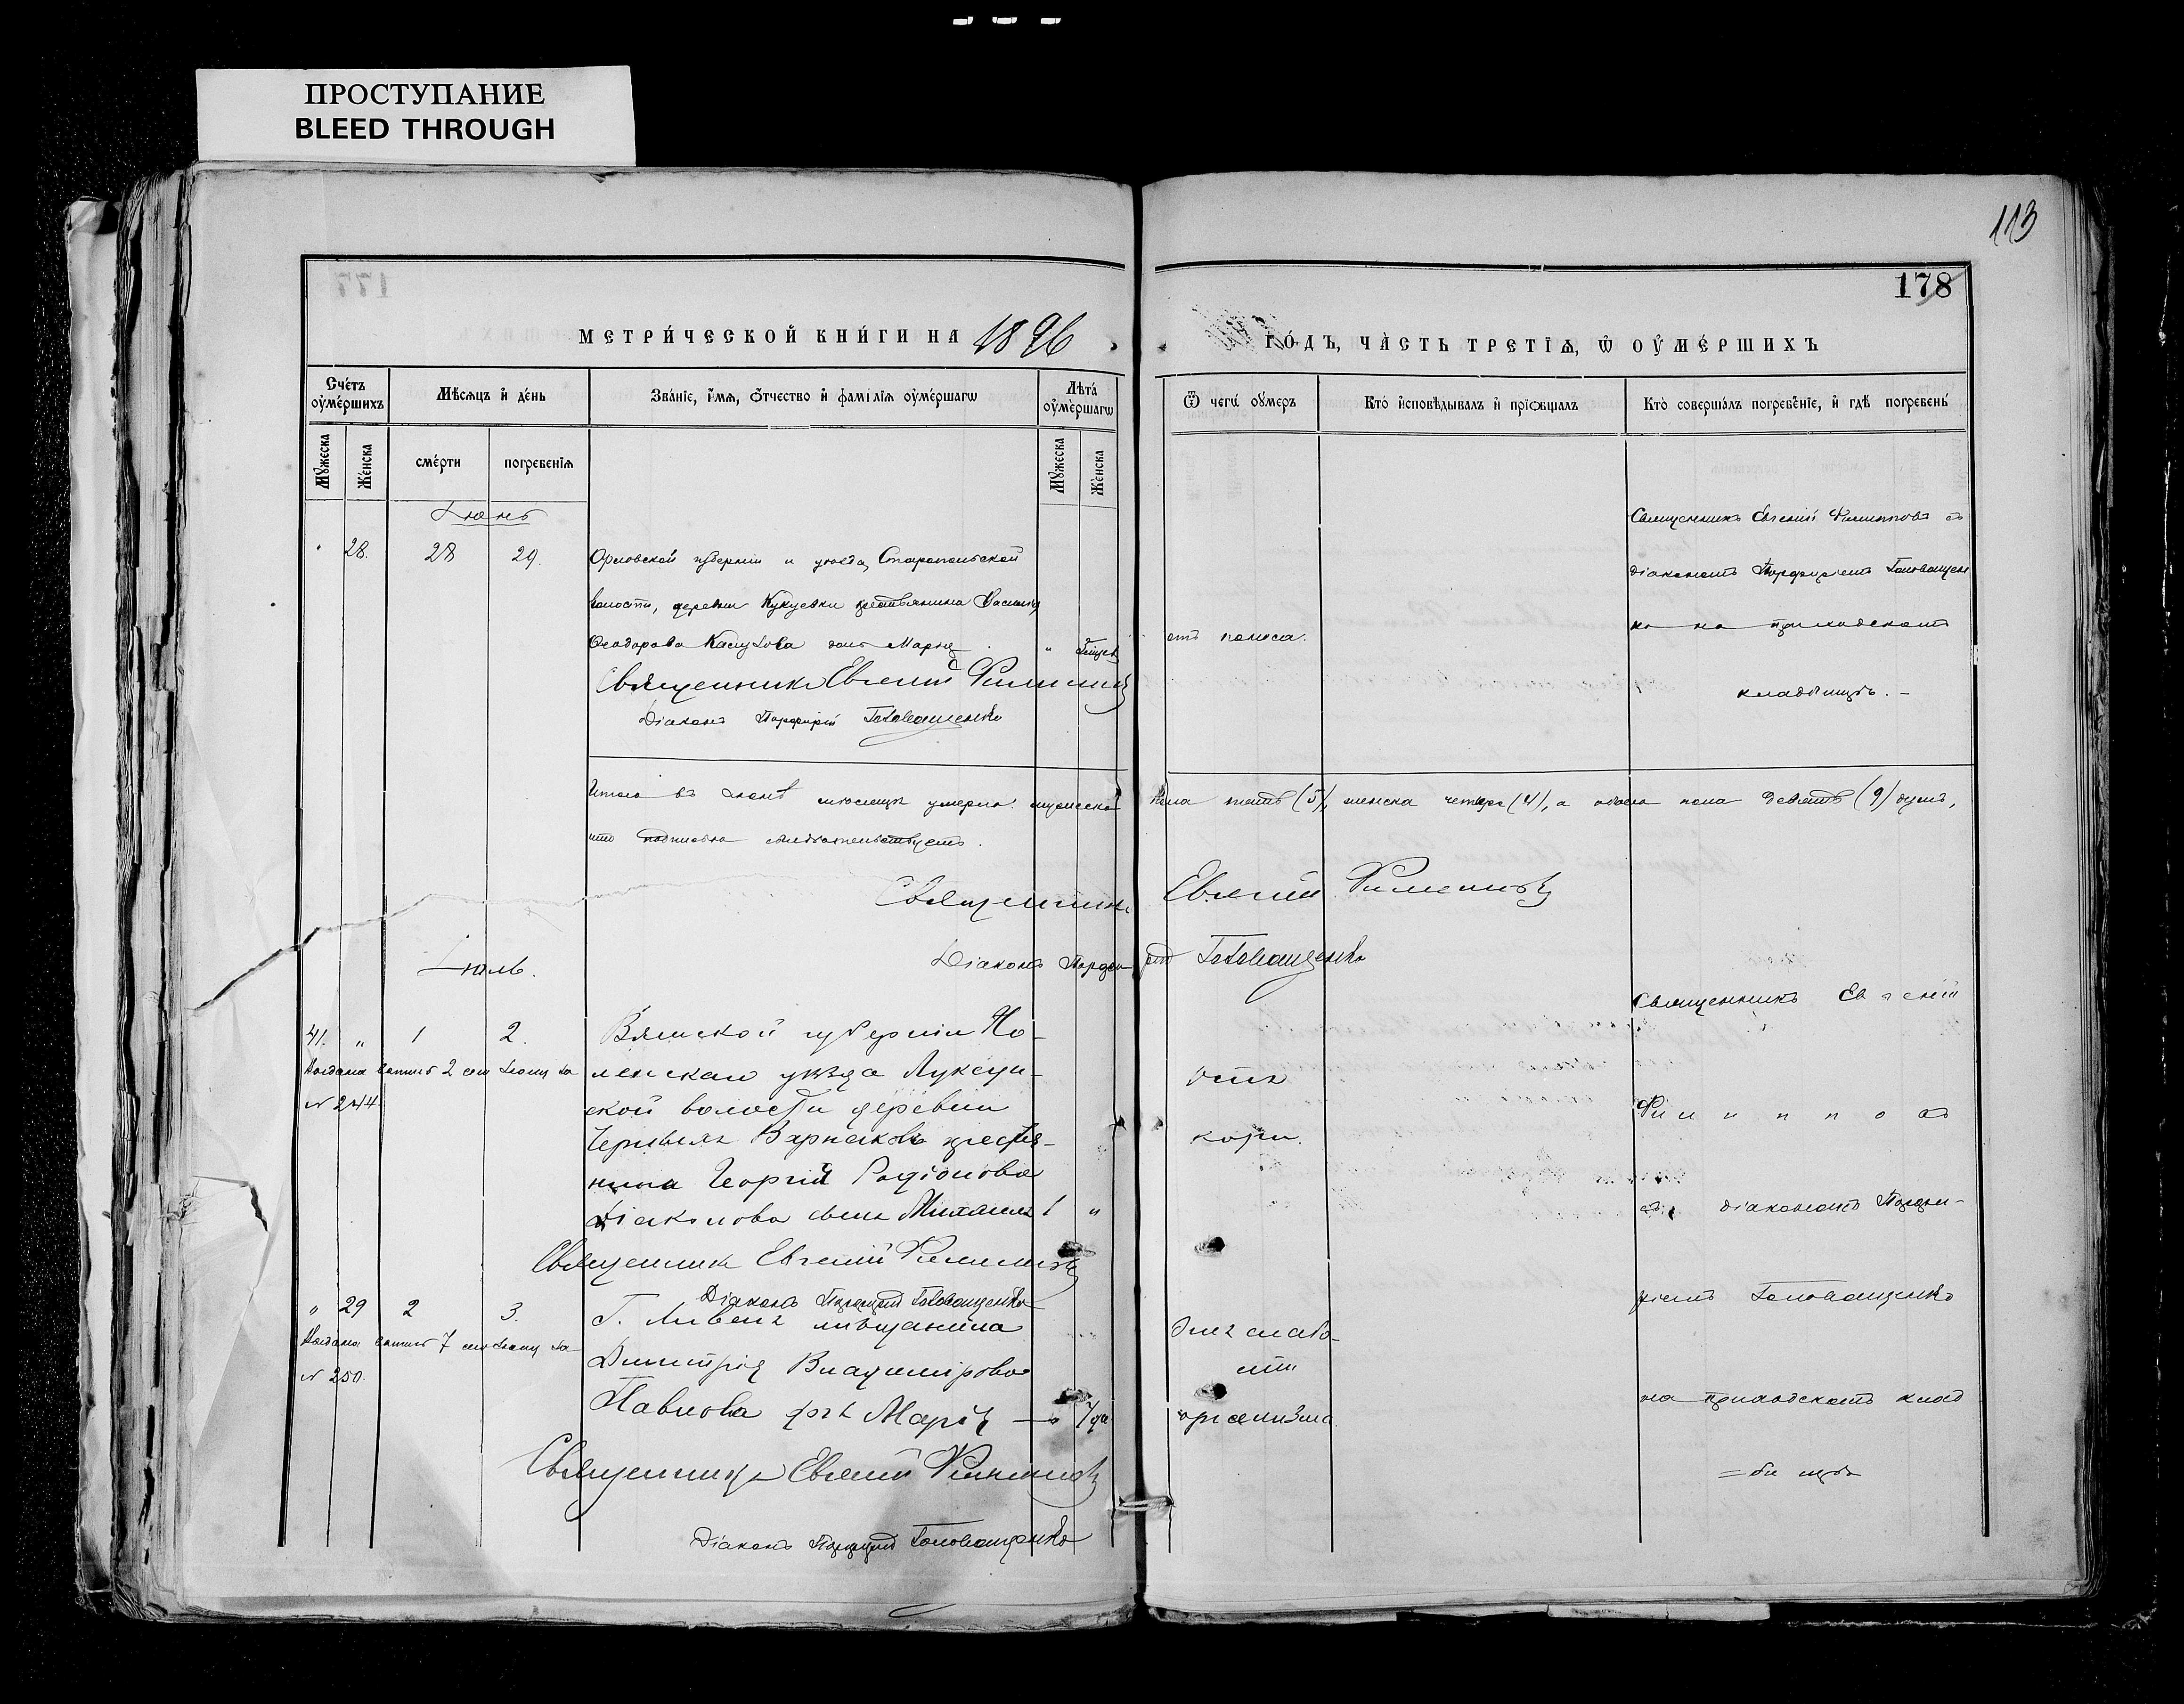 ПРОСТУПАНИЕ
BLEED THROUGH
113
178
МЕТРИ́ЧЕСКОЙ КНИ́ГИ НА 1896
ГО́ДЪ, ЧА̀СТЬ ТРЕТЇѦ, Ѡ҆ ОУ҆МЕ́РШИХЪ
Сче́тъ оу҆ме́ршихъ
Мѣ́сѧцъ и҆ де́нь
Зва́нїе, и҆́мѧ, о҆́тчество и҆ фамі́лїѧ оу҆ме́ршагѡ
Лѣта́ оу҆ме́ршагѡ
Ѿ чегѡ̀ оу҆́меръ
Кто̀ и҆сповѣ́дывалъ и҆ прїѻбща́лъ
Кто̀ соверша́лъ погребе́нїе, и҆ гдѣ̀ погребены̀
Мꙋ́жеска
Же́нска
сме́рти
погребе́нїѧ
Мꙋ́жеска
Же́нска
Іюнь
28. 28 29.
Орловской губерніи и уѣзда, Старопольской
волости, деревни Кукуевки крестьянина Василія
Ѳеодорова дочь Марія
Священникъ Евгеній Филиповъ
Діаконъ Порфирій Головащенко
отъ поноса.
Священникъ Евгеній Филипповъ съ
діакономъ Порфиріемъ Головащен
ко на приходскомъ
кладбищѣ. –
Итого въ Іюнѣ мѣсяцѣ умерло: мужеска пола пять (5), женска четыре (4), а обоего пола девять (9) душъ,
что подписомъ свидѣтельствуемъ.
Священникъ Евгеній Филиповъ
Діаконъ Порфирій Головащенко
Іюль.
41. „ 1 2.
Выдана 2 сего Іюля за
№ 244
Вятской губерніи Но-
линскаго уѣзда
ской волости деревни
крестья-
нина Георгія Родіонова
Діаконова сынъ Михаилъ 1 „
Священникъ Евгеній Филиповъ
Діаконъ Порфирій Головащенко
отъ
кори.
Священникъ Евгеній
Филипповъ
съ діакономъ Порфи-
ріемъ Головащенко
на приходскомъ клад
=бищѣ
„ 29 2 3.
Выдана 7 сего Іюля за
№ 250.
Г. Ливенъ мѣщанина
Димитрія Владимірова
Павлова дочь Марія
Священникъ Евгеній Филиповъ
Діаконъ Порфирій Головащенко
Отъ слабо-
сти
организма.